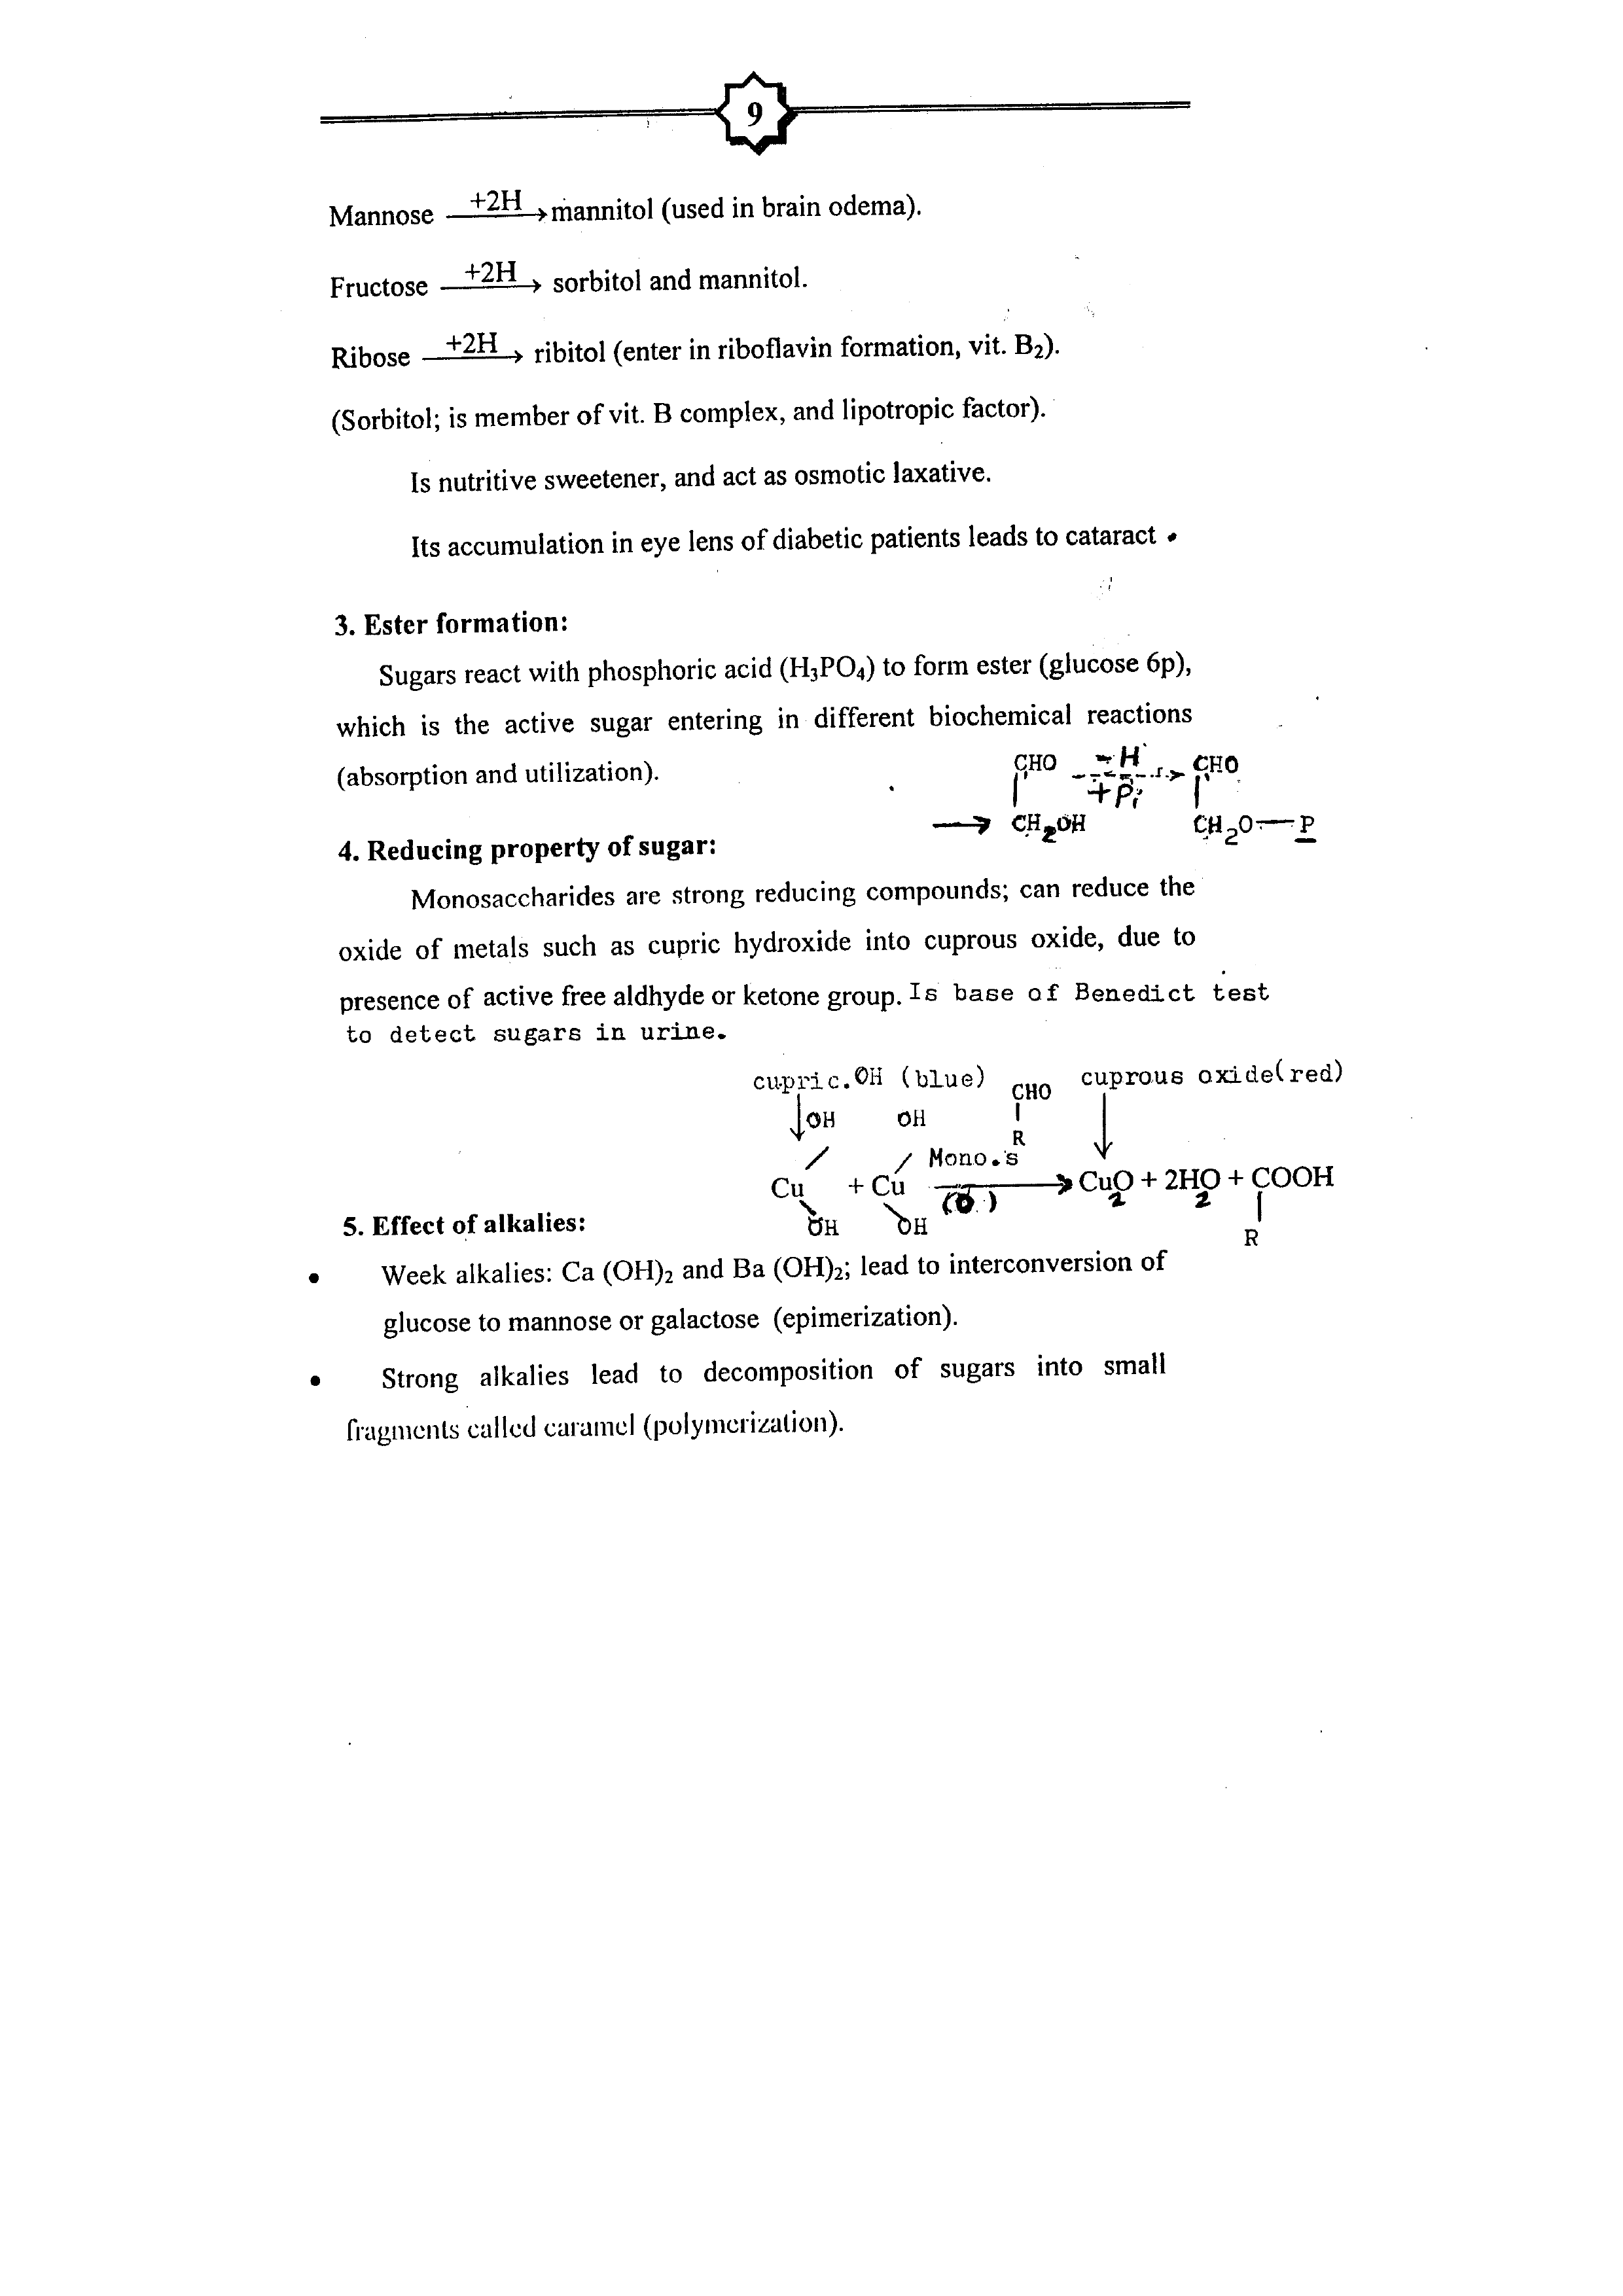 9
Mannose +2H → mannitol (used in brain odema).
Fructose +2H → sorbitol and mannitol.
Ribose +2H → ribitol (enter in riboflavin formation, vit. B₂).
(Sorbitol; is member of vit. B complex, and lipotropic factor).
Is nutritive sweetener, and act as osmotic laxative.
Its accumulation in eye lens of diabetic patients leads to cataract.
3. Ester formation:
Sugars react with phosphoric acid (H₃PO₄) to form ester (glucose 6p),
which is the active sugar entering in different biochemical reactions
(absorption and utilization).
CHO - H → CHO
+Pi
→ CH₂OH CH₂O—P
4. Reducing property of sugar:
Monosaccharides are strong reducing compounds; can reduce the
oxide of metals such as cupric hydroxide into cuprous oxide, due to
presence of active free aldhyde or ketone group. Is base of Benedict test
to detect sugars in urine.
cupric.OH (blue) CHO cuprous oxide(red)
OH OH
R
Mono.s
Cu + Cu → Cu₂O + 2H₂O + COOH
(O)
OH OH
R
5. Effect of alkalies:
• Week alkalies: Ca (OH)₂ and Ba (OH)₂; lead to interconversion of
glucose to mannose or galactose (epimerization).
• Strong alkalies lead to decomposition of sugars into small
fragments called caramel (polymerization).